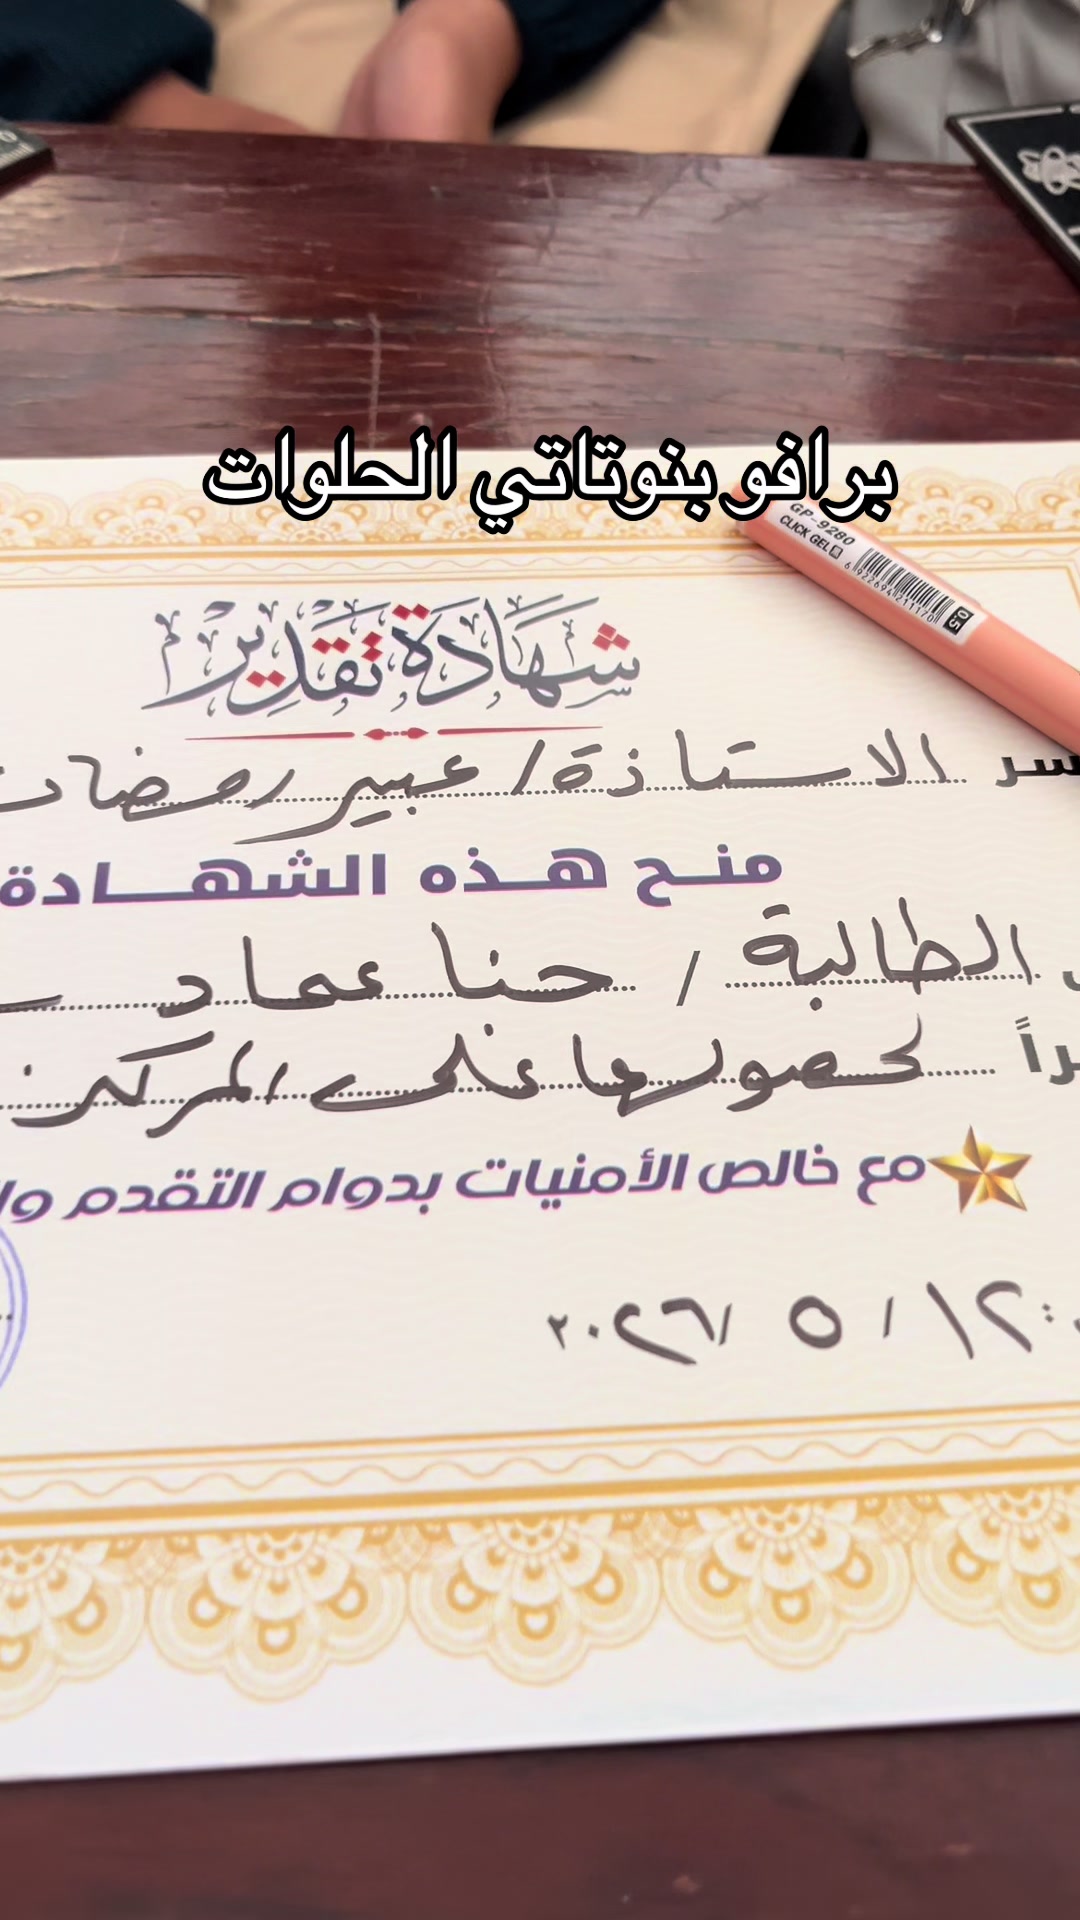 برافو بنوتاتي الحلوات
GP-9280
CLICK GEL
6922694211170
0.5
شهادة تقدير
الاستاذة / عبير رمضان
منح هذه الشهادة
الطالبة / حنا عماد
لحصولها على المركز
مع خالص الأمنيات بدوام التقدم
١٢ / ٥ / ٢٠٢٦